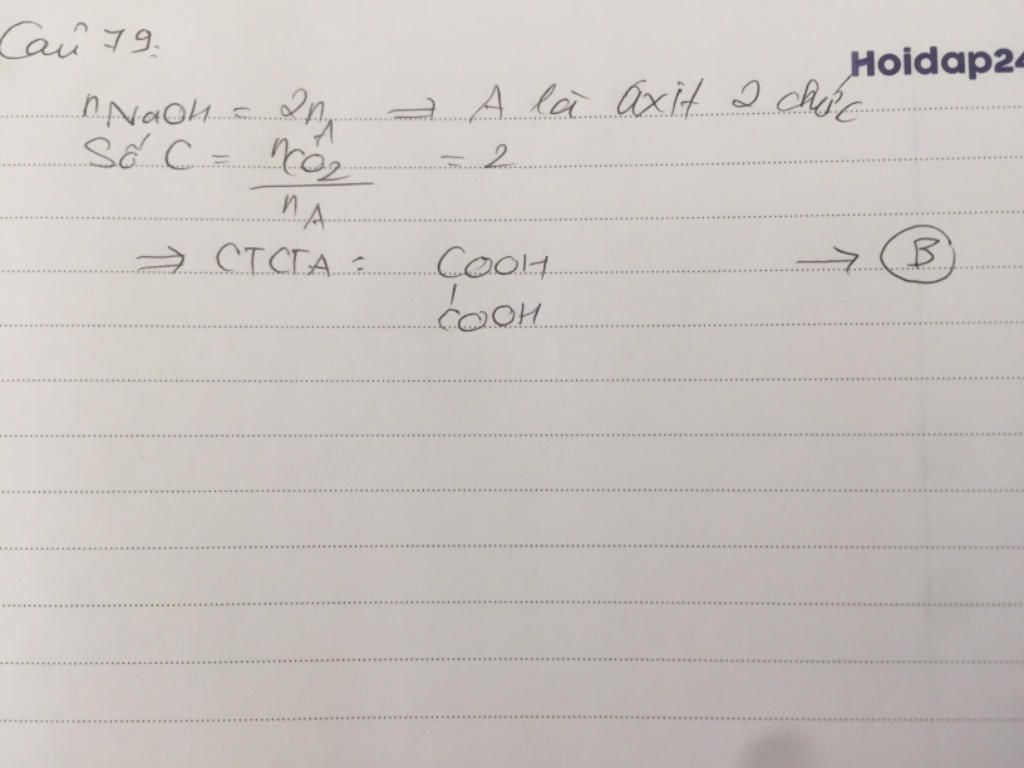 Câu 79:
Hoidap24
nNaOH = 2nA => A là axit 2 chức
Số C = nCO2 / nA = 2
=> CTCTA: COOH → B
COOH